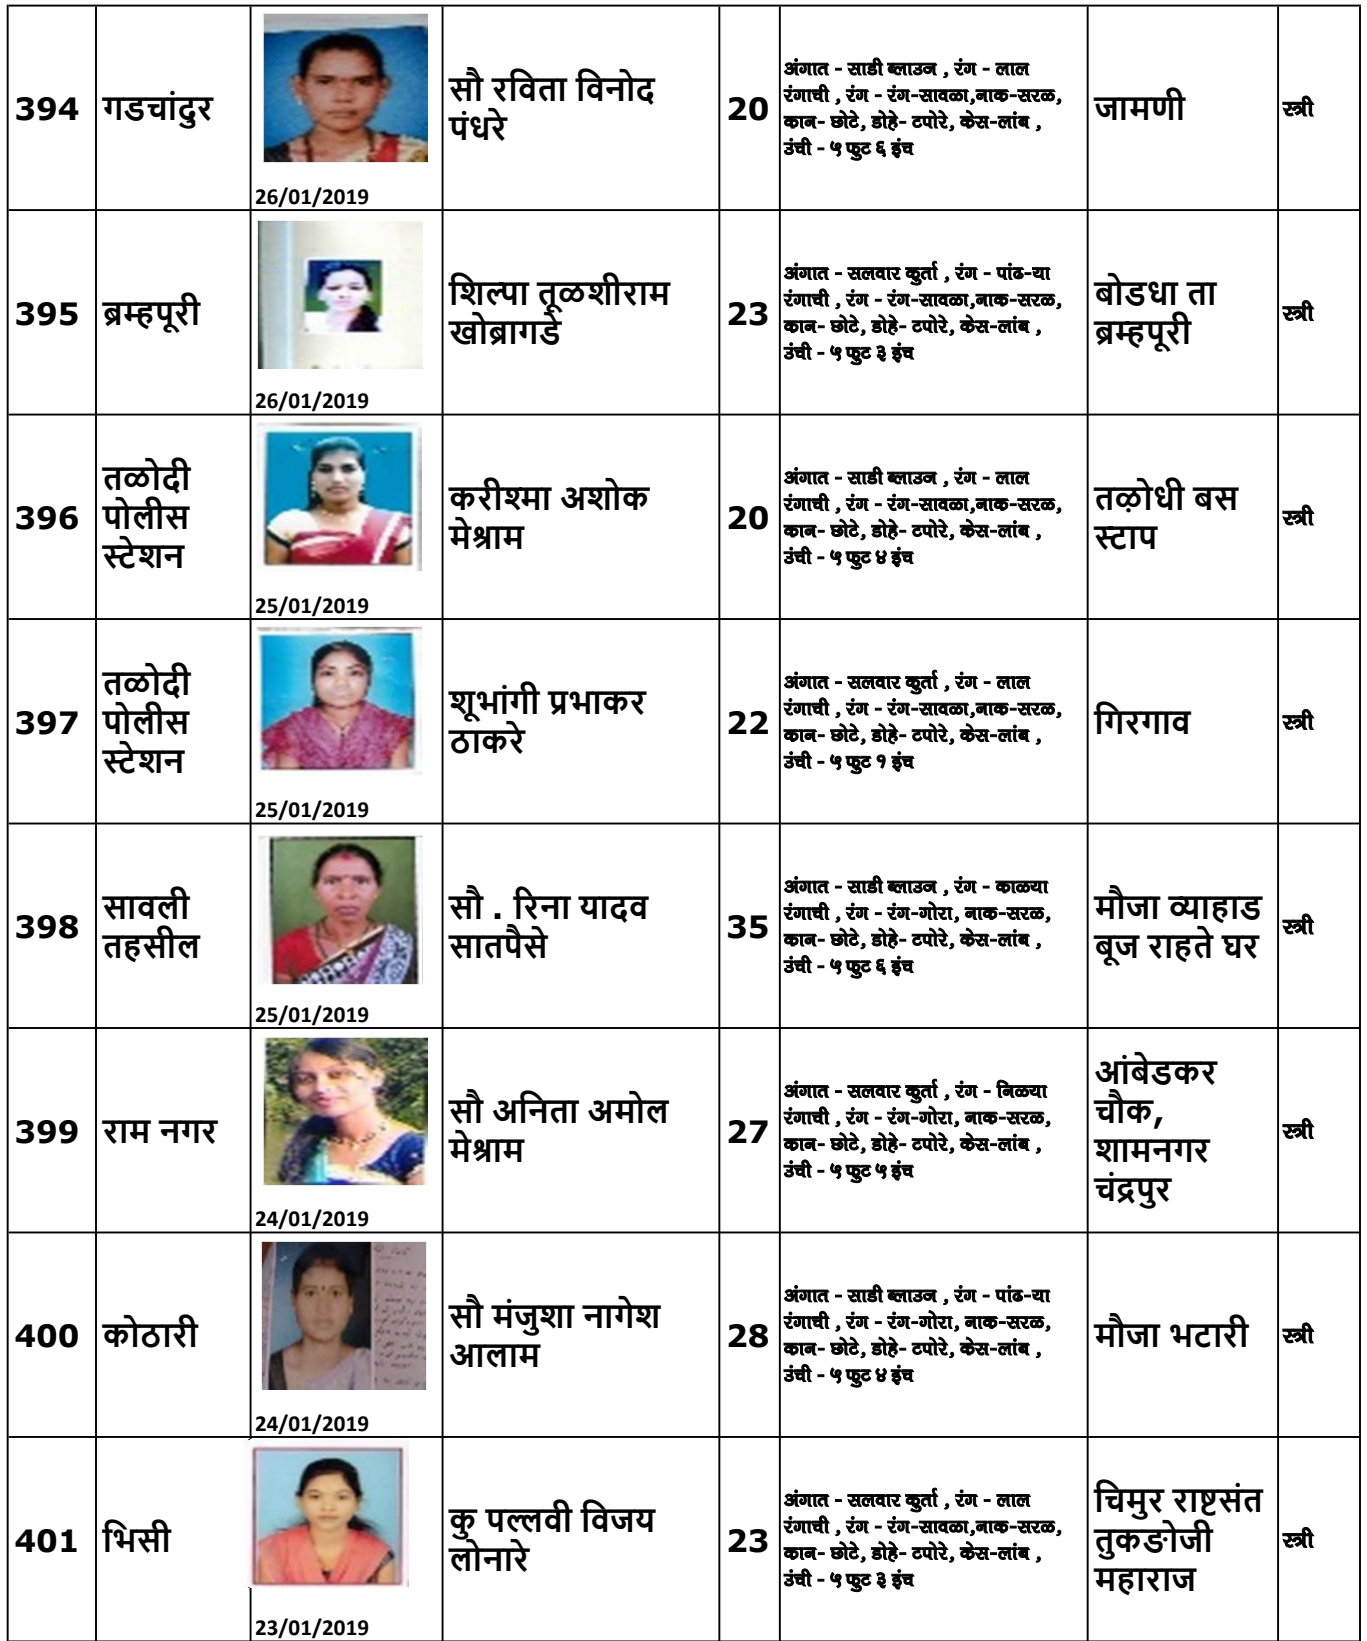 394
गडचांदुर
26/01/2019
सौ रविता विनोद
पंधरे
20
अंगात - साडी ब्लाउज , रंग - लाल
रंगाची , रंग - रंग-सावळा,नाक-सरळ,
कान- छोटे, डोहे- टपोरे, केस-लांब ,
उंची - ५ फुट ६ इंच
जामणी
स्त्री
395
ब्रम्हपूरी
26/01/2019
शिल्पा तूळशीराम
खोब्रागडे
23
अंगात - सलवार कुर्ता , रंग - पांढ-या
रंगाची , रंग - रंग-सावळा,नाक-सरळ,
कान- छोटे, डोहे- टपोरे, केस-लांब ,
उंची - ५ फुट ३ इंच
बोडधा ता
ब्रम्हपूरी
स्त्री
396
तळोदी
पोलीस
स्टेशन
25/01/2019
करीश्मा अशोक
मेश्राम
20
अंगात - साडी ब्लाउज , रंग - लाल
रंगाची , रंग - रंग-सावळा,नाक-सरळ,
कान- छोटे, डोहे- टपोरे, केस-लांब ,
उंची - ५ फुट ४ इंच
तऴोधी बस
स्टाप
स्त्री
397
तळोदी
पोलीस
स्टेशन
25/01/2019
शूभांगी प्रभाकर
ठाकरे
22
अंगात - सलवार कुर्ता , रंग - लाल
रंगाची , रंग - रंग-सावळा,नाक-सरळ,
कान- छोटे, डोहे- टपोरे, केस-लांब ,
उंची - ५ फुट १ इंच
गिरगाव
स्त्री
398
सावली
तहसील
25/01/2019
सौ . रिना यादव
सातपैसे
35
अंगात - साडी ब्लाउज , रंग - काळया
रंगाची , रंग - रंग-गोरा, नाक-सरळ,
कान- छोटे, डोहे- टपोरे, केस-लांब ,
उंची - ५ फुट ६ इंच
मौजा व्याहाड
बूज राहते घर
स्त्री
399
राम नगर
24/01/2019
सौ अनिता अमोल
मेश्राम
27
अंगात - सलवार कुर्ता , रंग - निळया
रंगाची , रंग - रंग-गोरा, नाक-सरळ,
कान- छोटे, डोहे- टपोरे, केस-लांब ,
उंची - ५ फुट ५ इंच
आंबेडकर
चौक,
शामनगर
चंद्रपुर
स्त्री
400
कोठारी
24/01/2019
सौ मंजुशा नागेश
आलाम
28
अंगात - साडी ब्लाउज , रंग - पांढ-या
रंगाची , रंग - रंग-गोरा, नाक-सरळ,
कान- छोटे, डोहे- टपोरे, केस-लांब ,
उंची - ५ फुट ४ इंच
मौजा भटारी
स्त्री
401
भिसी
23/01/2019
कु पल्लवी विजय
लोनारे
23
अंगात - सलवार कुर्ता , रंग - लाल
रंगाची , रंग - रंग-सावळा,नाक-सरळ,
कान- छोटे, डोहे- टपोरे, केस-लांब ,
उंची - ५ फुट ३ इंच
चिमुर राष्टसंत
तुकङोजी
महाराज
स्त्री